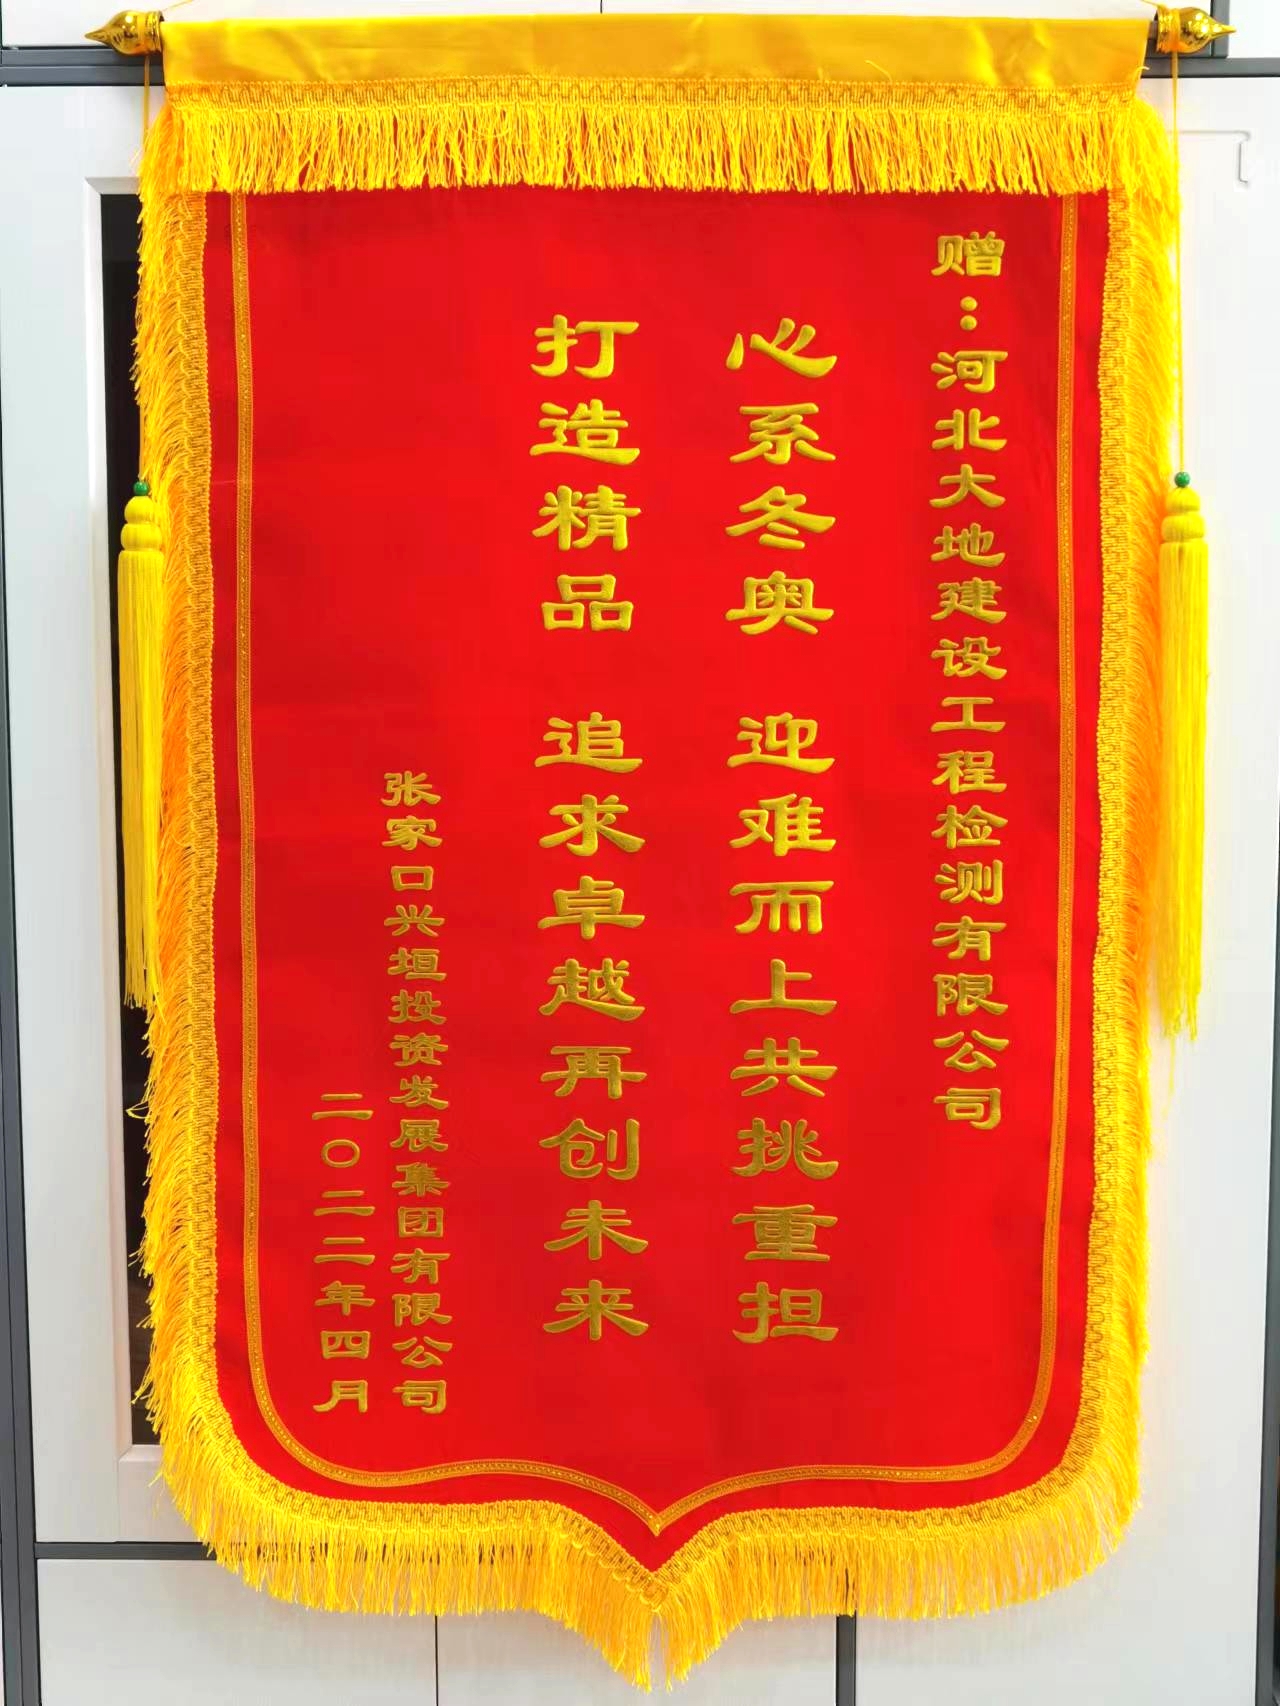 赠：河北大地建设工程检测有限公司
心系冬奥 迎难而上共挑重担
打造精品 追求卓越再创未来
张家口兴垣投资发展集团有限公司
二〇二二年四月